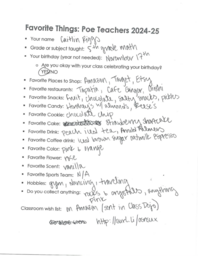 Favorite Things: Poe Teachers 2024-25
Your name Caitlin
Grade or subject taught: 5th grade math
Your birthday (year not needed): November 17th
Are you okay with your class celebrating your birthday?
Favorite Places to Shop: Amazon, Target, Etsy
Favorite restaurants:
Favorite Snack: fruit, chocolate, salty snacks, pickles
Favorite Candy: w/ almonds, Reeses
Favorite Cookie: chocolate chip
Favorite Cake: strawberry shortcake
Favorite Drink: peach iced tea, Arnold Palmers
Favorite Coffee drink: iced brown sugar oatmilk espresso
Favorite Color: pink & orange
Favorite Flower: rose
Favorite Scent: vanilla
Favorite Sports Team: N/A
Hobbies: gym, dancing, traveling
Do you collect anything: rocks & crystals, anything pink
Classroom wish list: on Amazon (sent in Class Dojo)